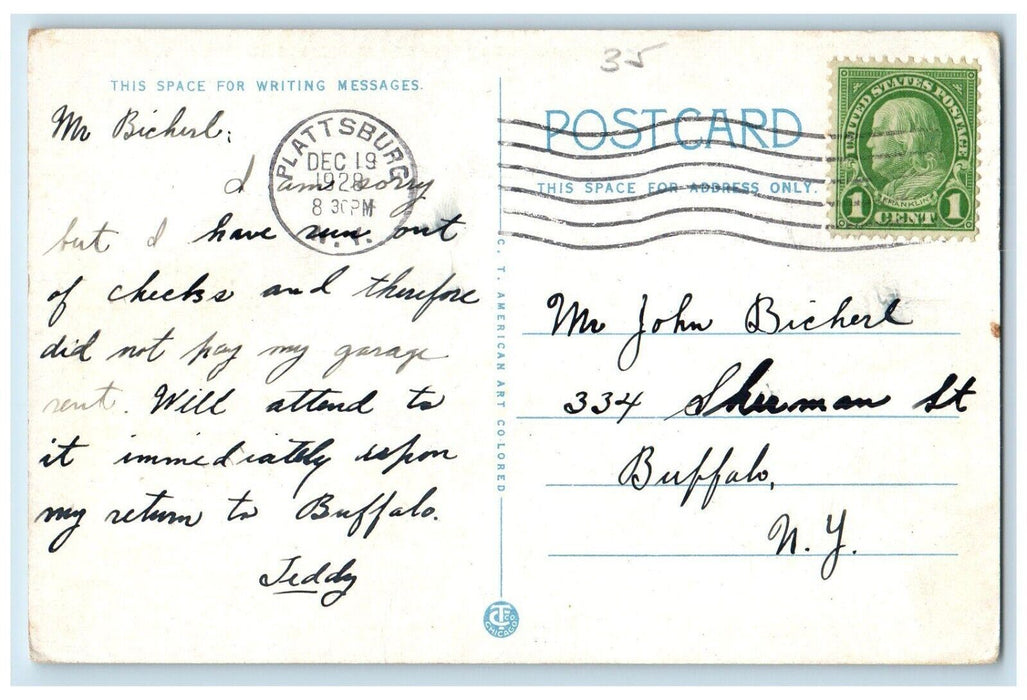 35
THIS SPACE FOR WRITING MESSAGES.
Mr Bicherl:
I am sorry
but I have run out
of checks and therefore
did not pay my garage
rent. Will attend to
it immediately upon
my return to Buffalo.
Teddy
PLATTSBURG
DEC 19
1928
8 30 PM
N.Y.
C. T. AMERICAN ART COLORED
CTCo
CHICAGO
POST CARD
THIS SPACE FOR ADDRESS ONLY.
UNITED STATES POSTAGE
FRANKLIN
1 CENT 1
Mr John Bicherl
334 Sherman St
Buffalo,
N.Y.